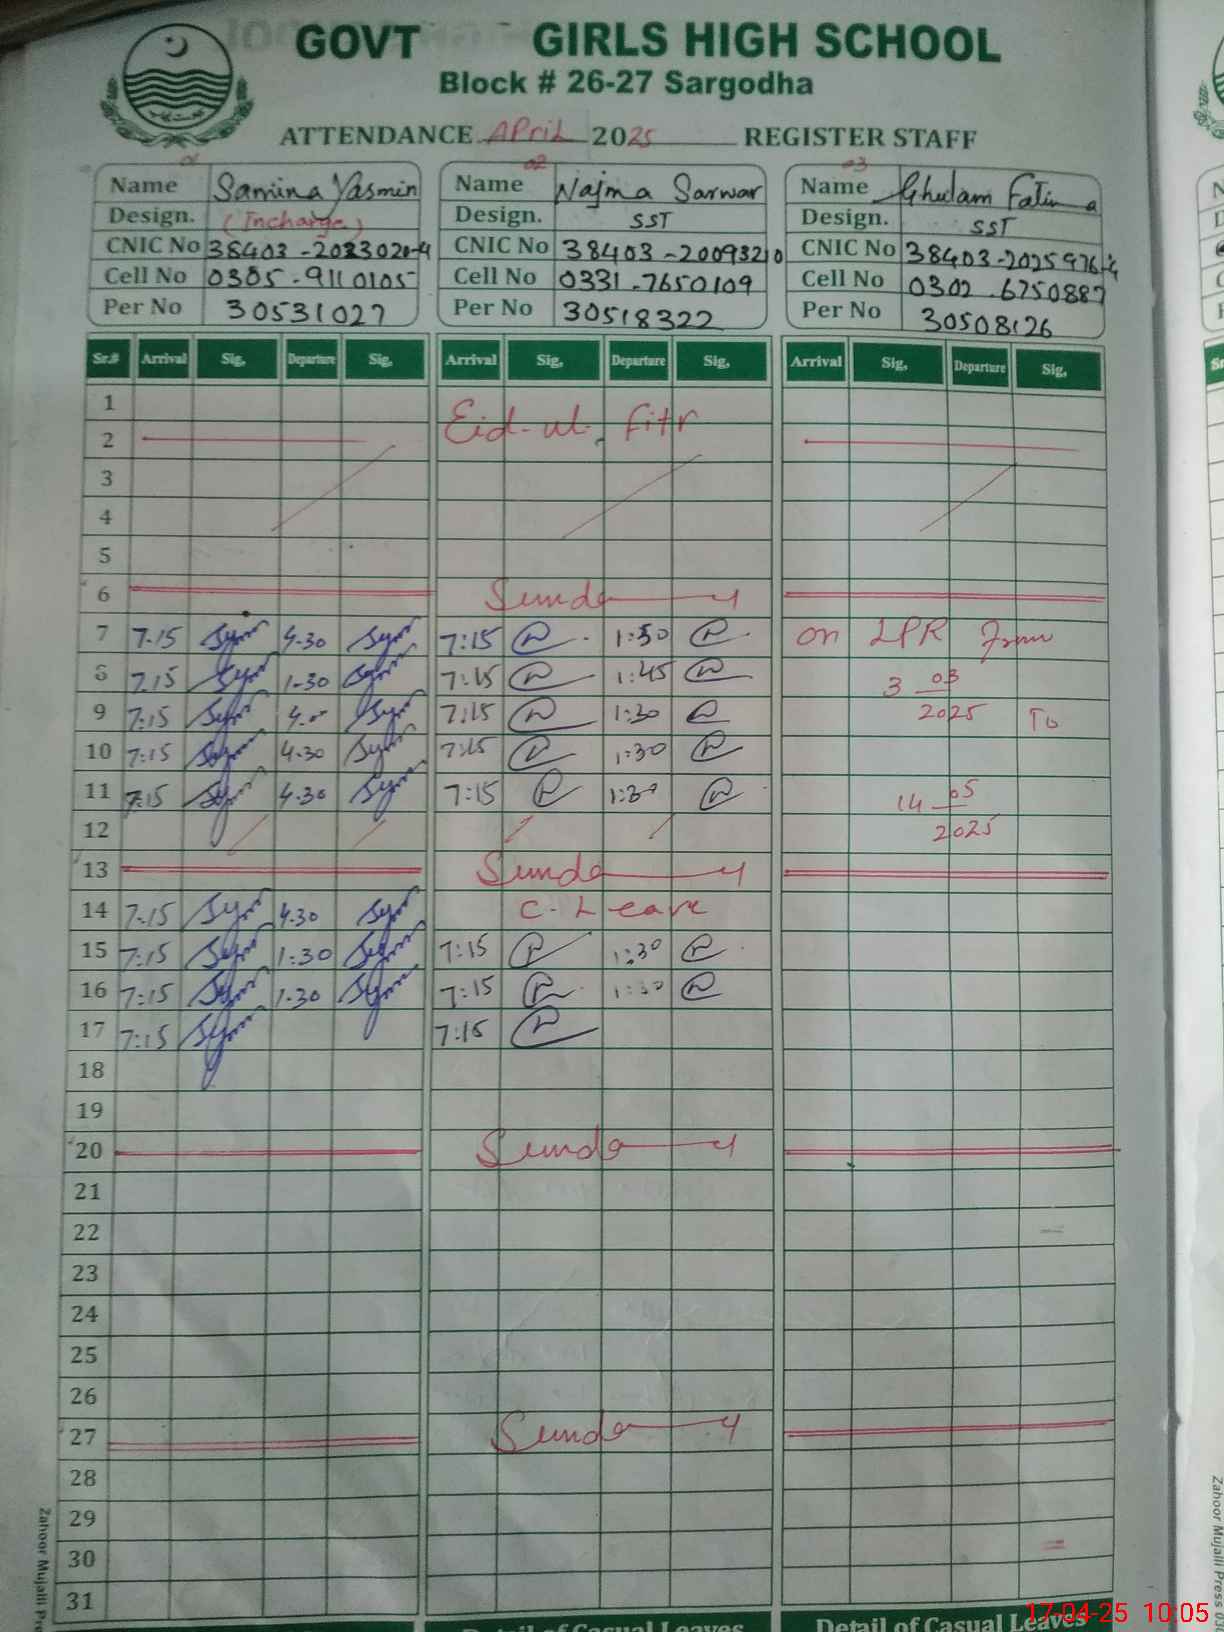 GOVT GIRLS HIGH SCHOOL
Block # 26-27 Sargodha
ATTENDANCE APRIL 2025 REGISTER STAFF
01 02 03
Name Samina Yasmin Name Najma Sarwar Name Ghulam Fatima
Design. (Incharge) Design. SST Design. SST
CNIC No 38403-2033020-4 CNIC No 38403-20093210 CNIC No 38403-2025976-4
Cell No 0305-9110105 Cell No 0331-7650109 Cell No 0302-6750887
Per No 30531027 Per No 30518322 Per No 30508126
Sr.# Arrival Sig, Departure Sig, Arrival Sig, Departure Sig, Arrival Sig, Departure Sig,
1 Eid-ul-Fitr
2
3
4
5
6 Sunday
7 7.15 4.30 7:15 1:30 on LPR From
8 7.15 1-30 7:15 1:45 3 03
9 7:15 4.00 7:15 1:30 2025 To
10 7:15 4.30 7:15 1:30
11 7:15 4.30 7:15 1:30 14 05
12 2025
13 Sunday
14 7:15 4.30 C. Leave
15 7:15 1:30 7:15 1:30
16 7:15 1.30 7:15 1:30
17 7:15 7:15
18
19
20 Sunday
21
22
23
24
25
26
27 Sunday
28
29
30
31
Detail of Casual Leaves Detail of Casual Leaves
17-04-25 10:05
Zahoor Mujalli Pr
Zahoor Mujalli Press